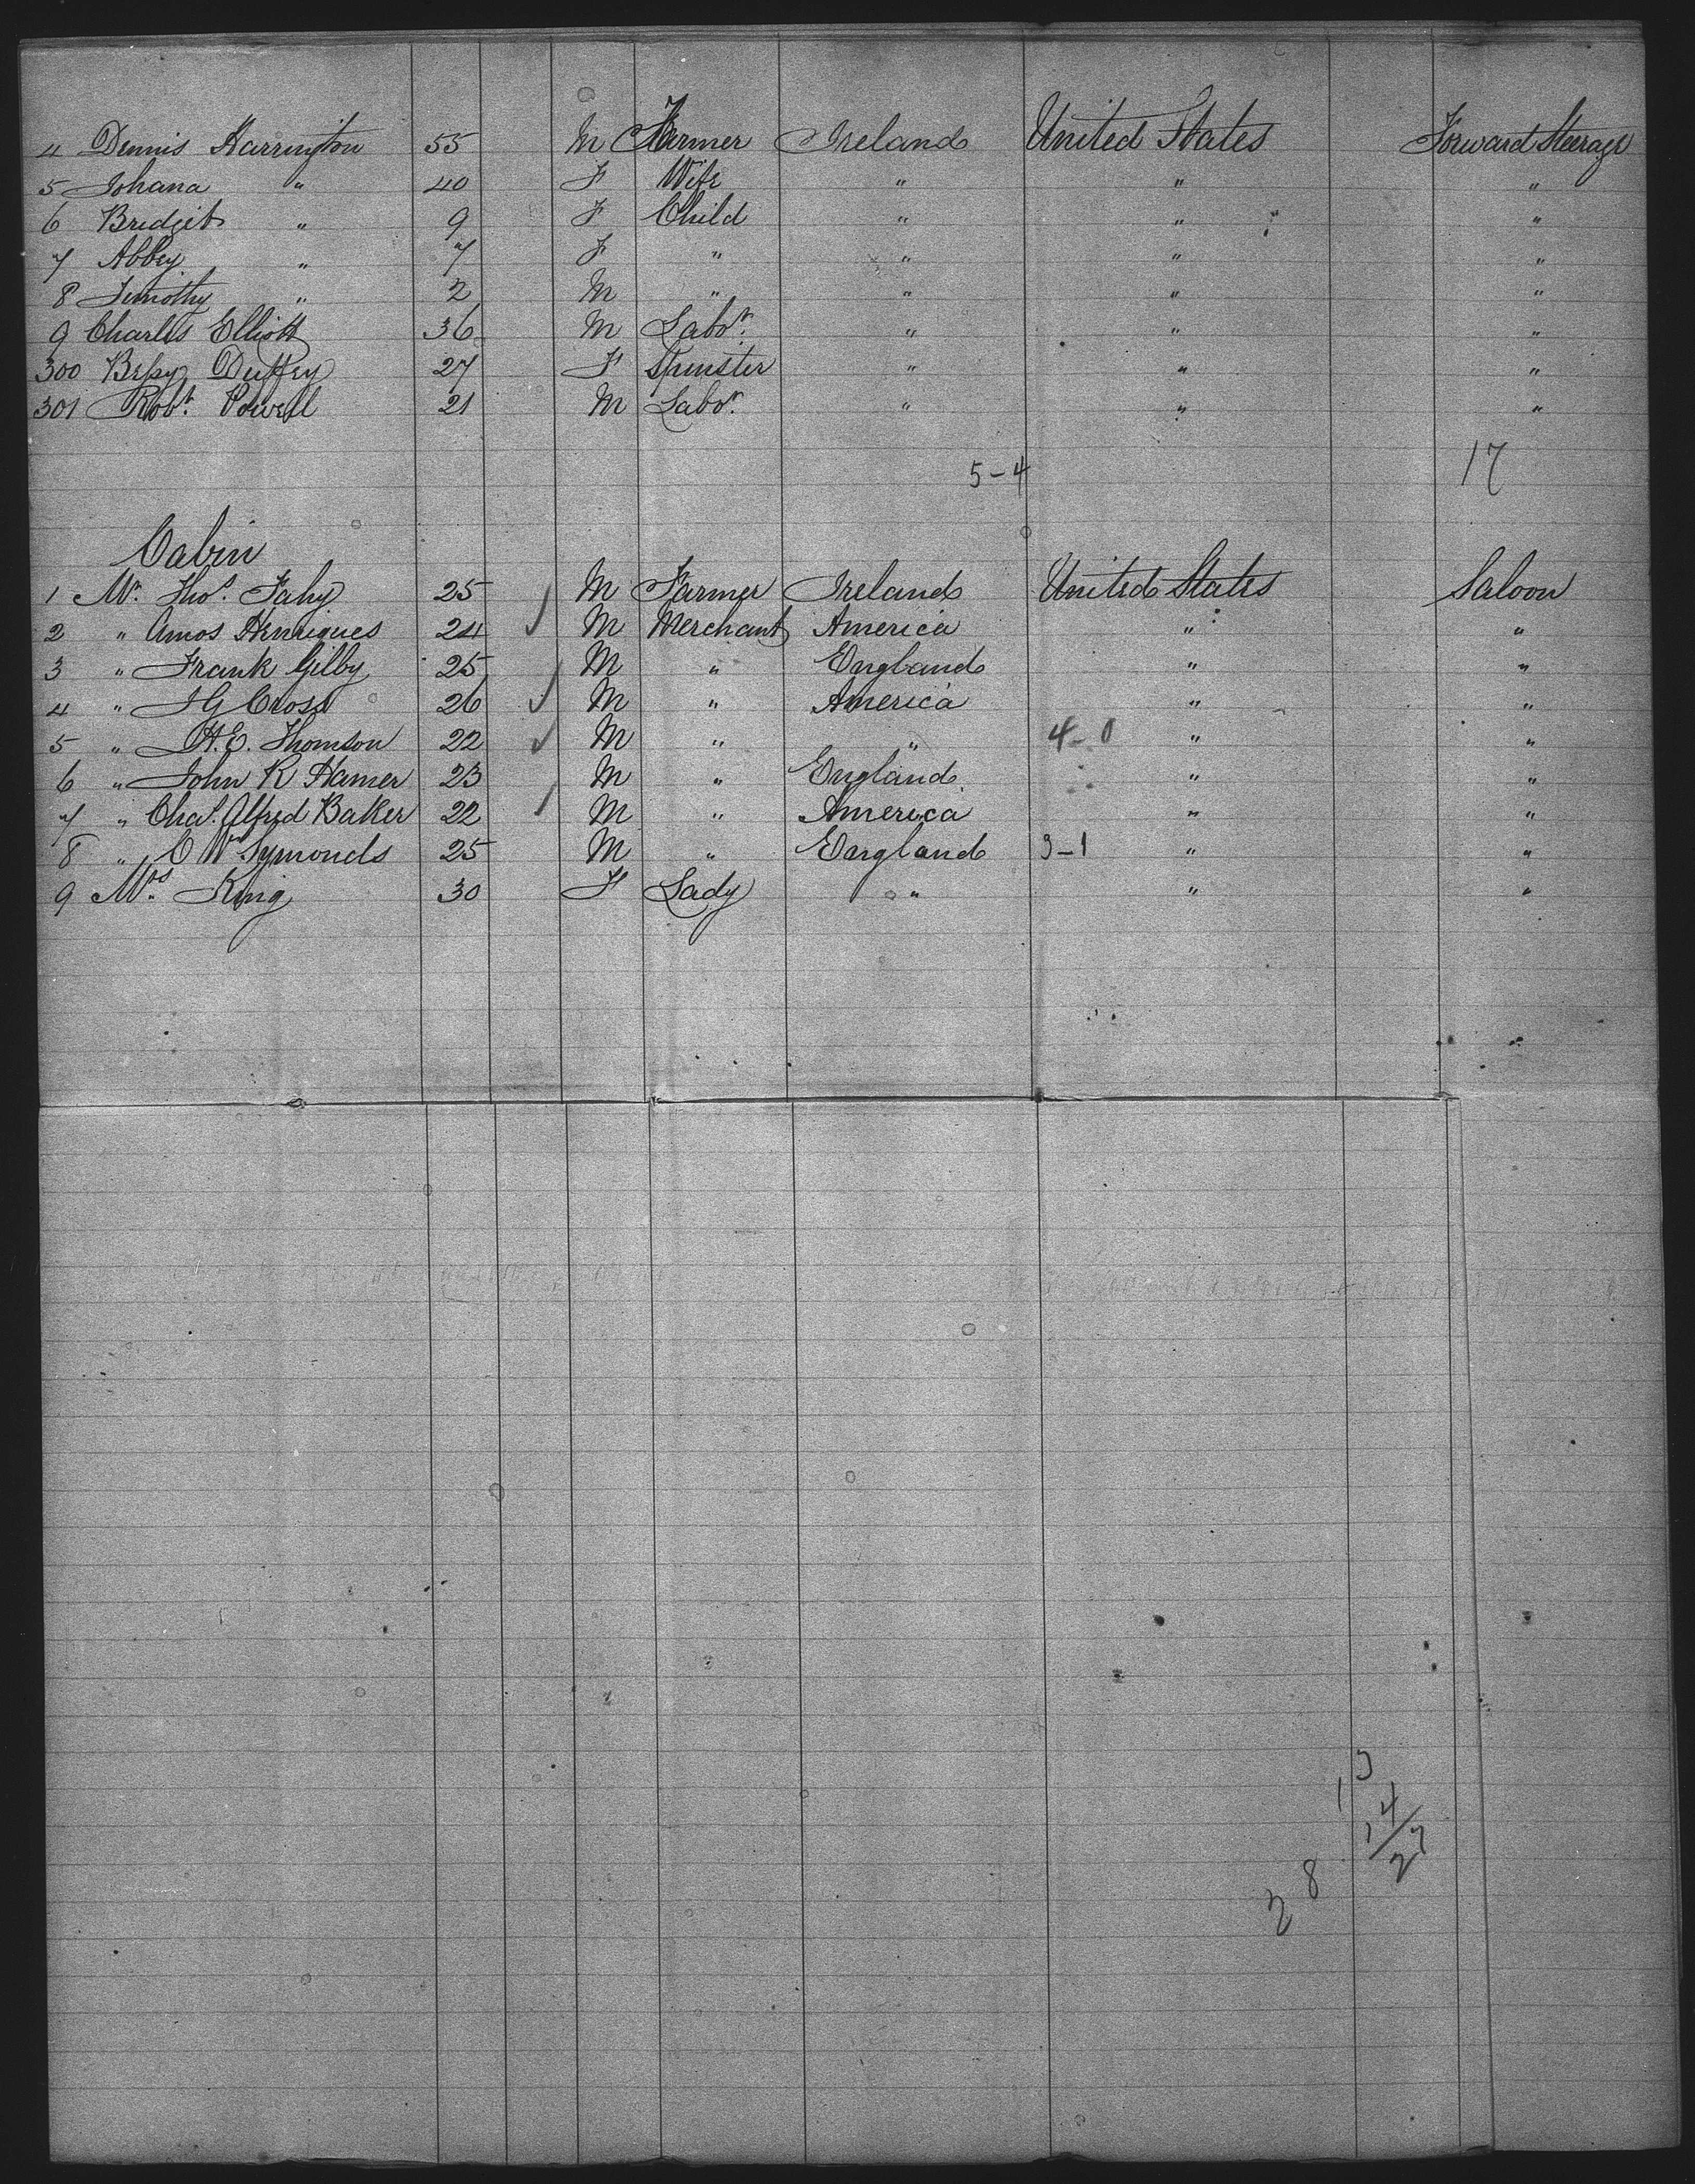 4 Dennis Harrington 55 M Farmer Ireland United States Forward Steerage
5 Johana " 40 F Wife " " "
6 Bridgit " 9 F Child " " "
7 Abbey " 7 F " " " "
8 Timothy " 2 M " " " "
9 Charles Elliott 36 M Labor. " " "
300 Bessy Duffey 27 F Spinster " " "
301 Robt. Powell 21 M Labor. " " "
5-4 17
Cabin
1 Mr. Thos. Fahy 25 M Farmer Ireland United States Saloon
2 " Amos Henriques 24 M Merchant America " "
3 " Frank Gilby 25 M " England " "
4 " J G Cross 26 M " America " "
5 " H. E. Thomson 22 M " " 4-0 " "
6 " John R Hamer 23 M " England " "
7 " Chas. Alfred Baker 22 M " America " "
8 " C Wm Symonds 25 M " England 3-1 " "
9 Mrs. King 30 F Lady " " "
13
14
27
28